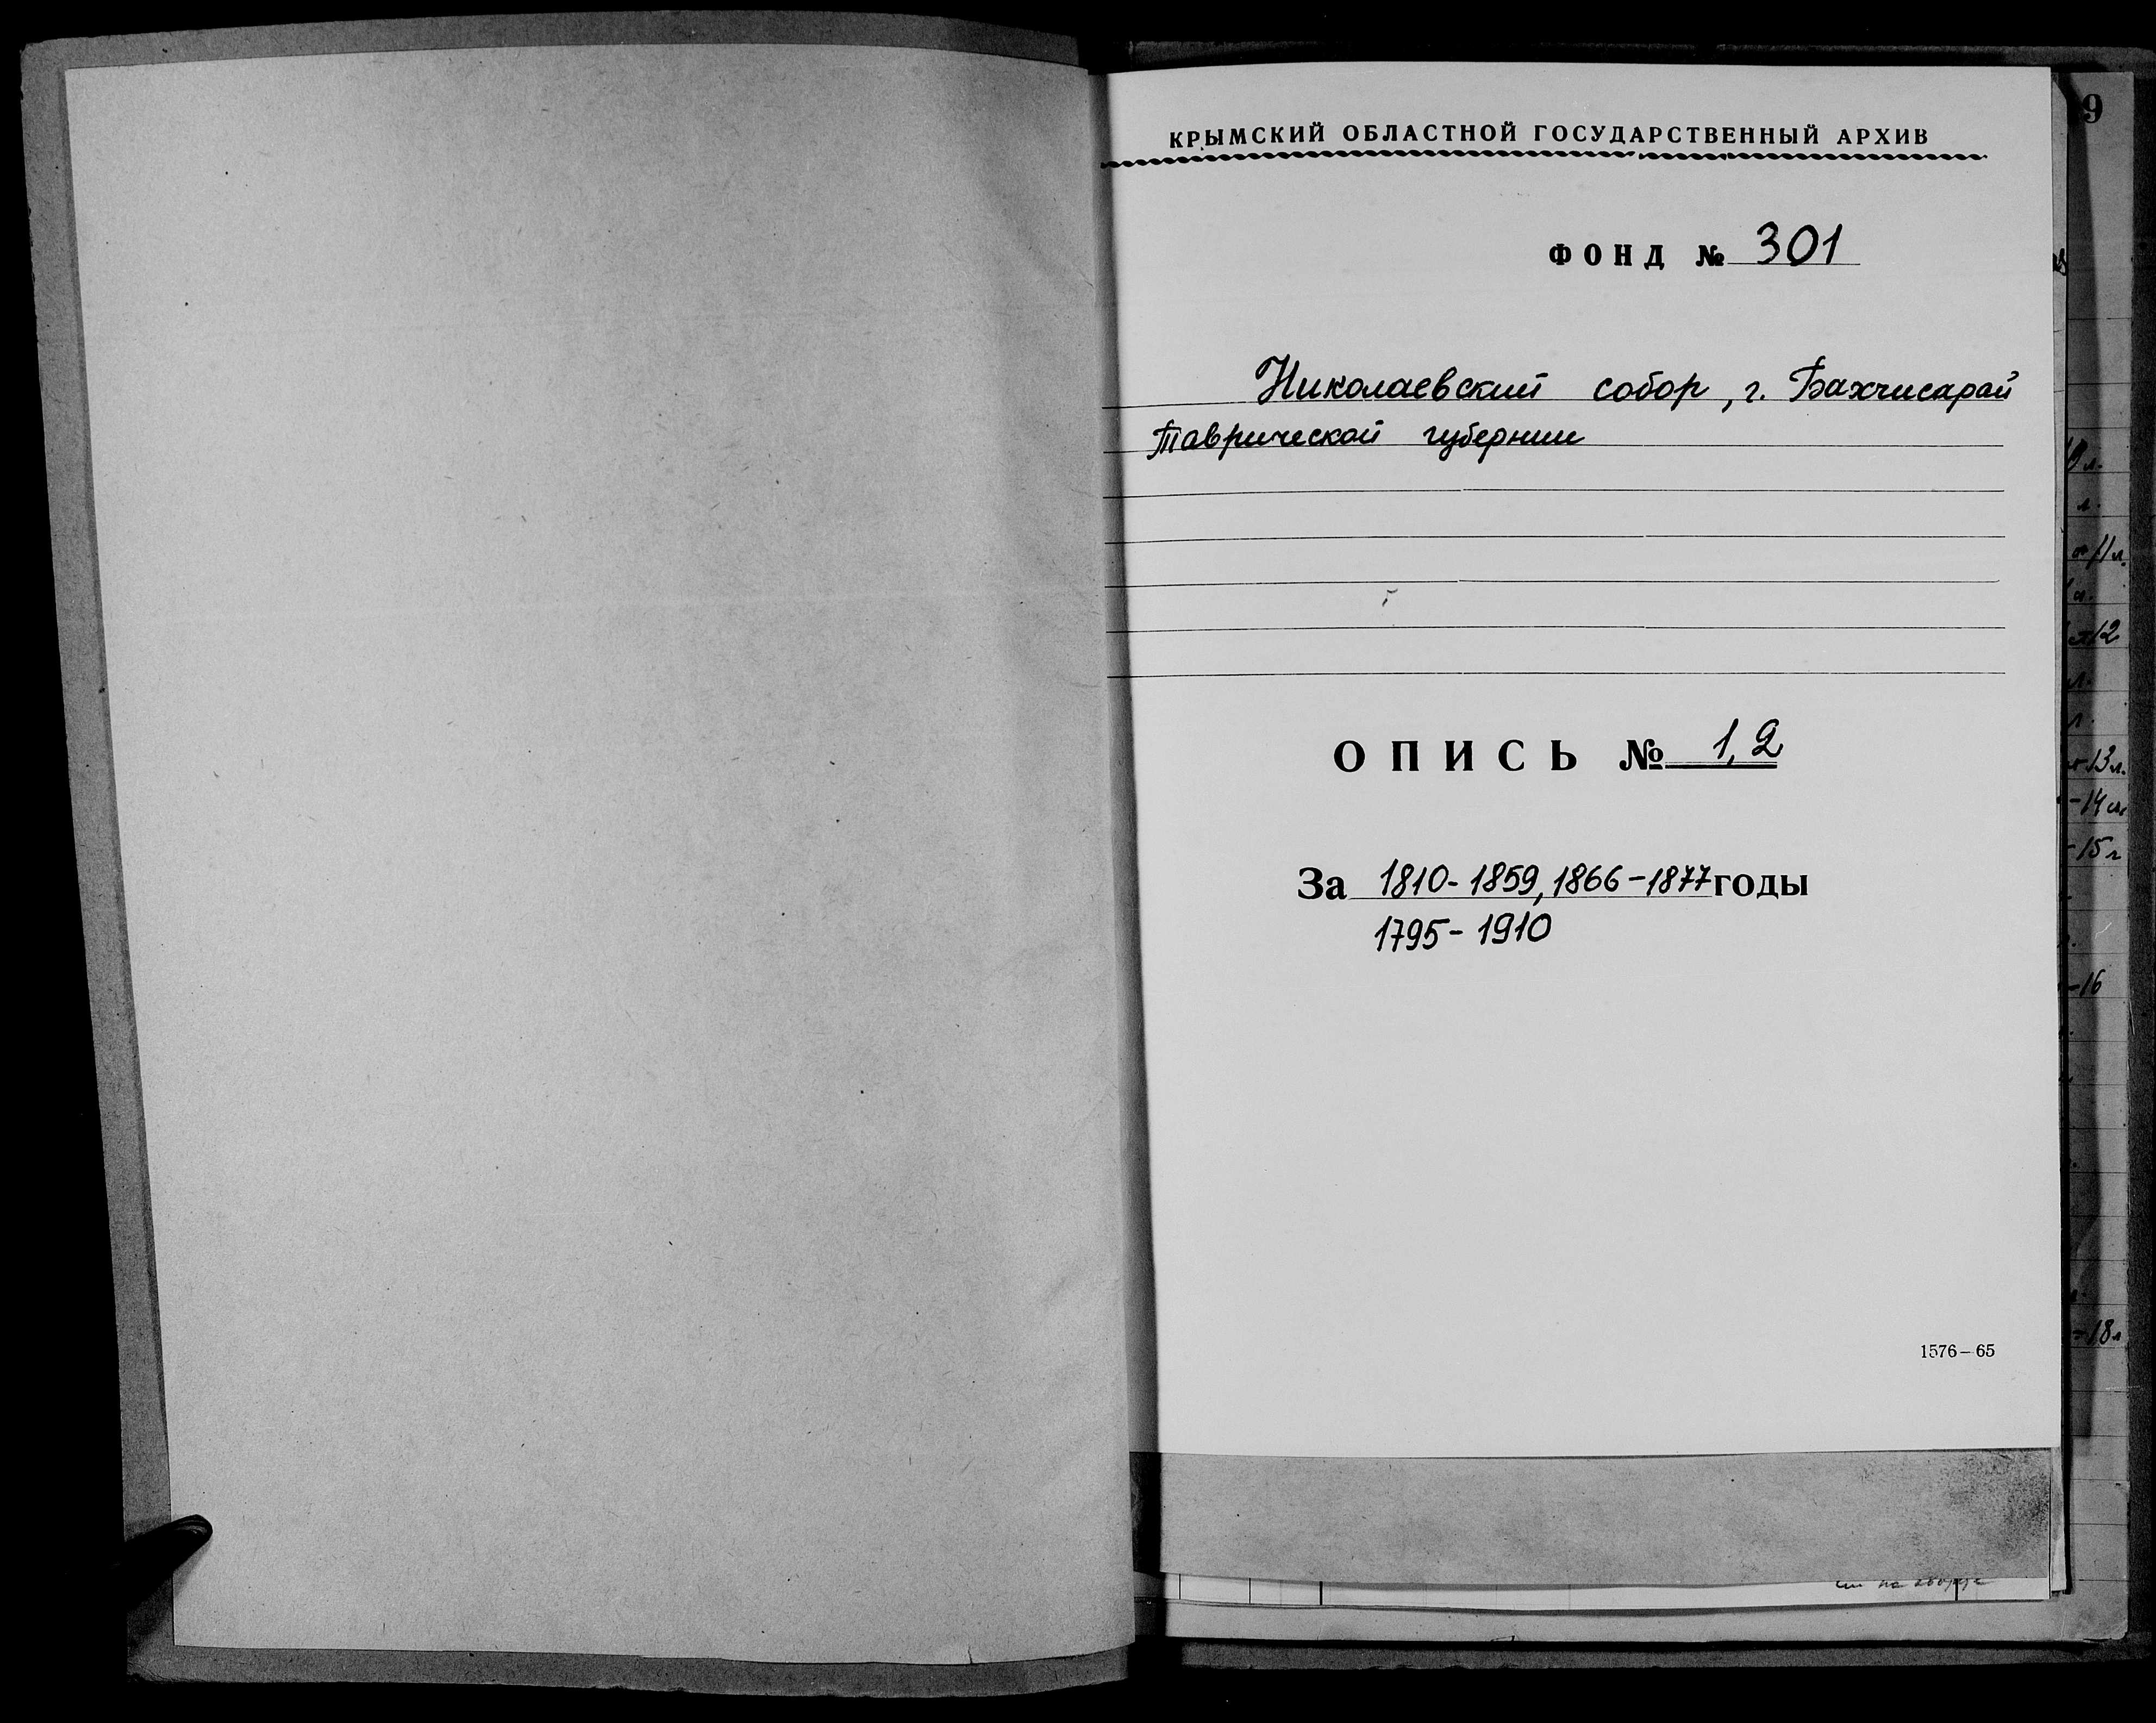 КРЫМСКИЙ ОБЛАСТНОЙ ГОСУДАРСТВЕННЫЙ АРХИВ
ФОНД № 301
Николаевский собор, г. Бахчисарай
Таврической губернии
ОПИСЬ № 1, 2
За 1810-1859, 1866-1877 годы
1795-1910
1576-65
9
11л.
12
13л.
-14
-15
-16
18